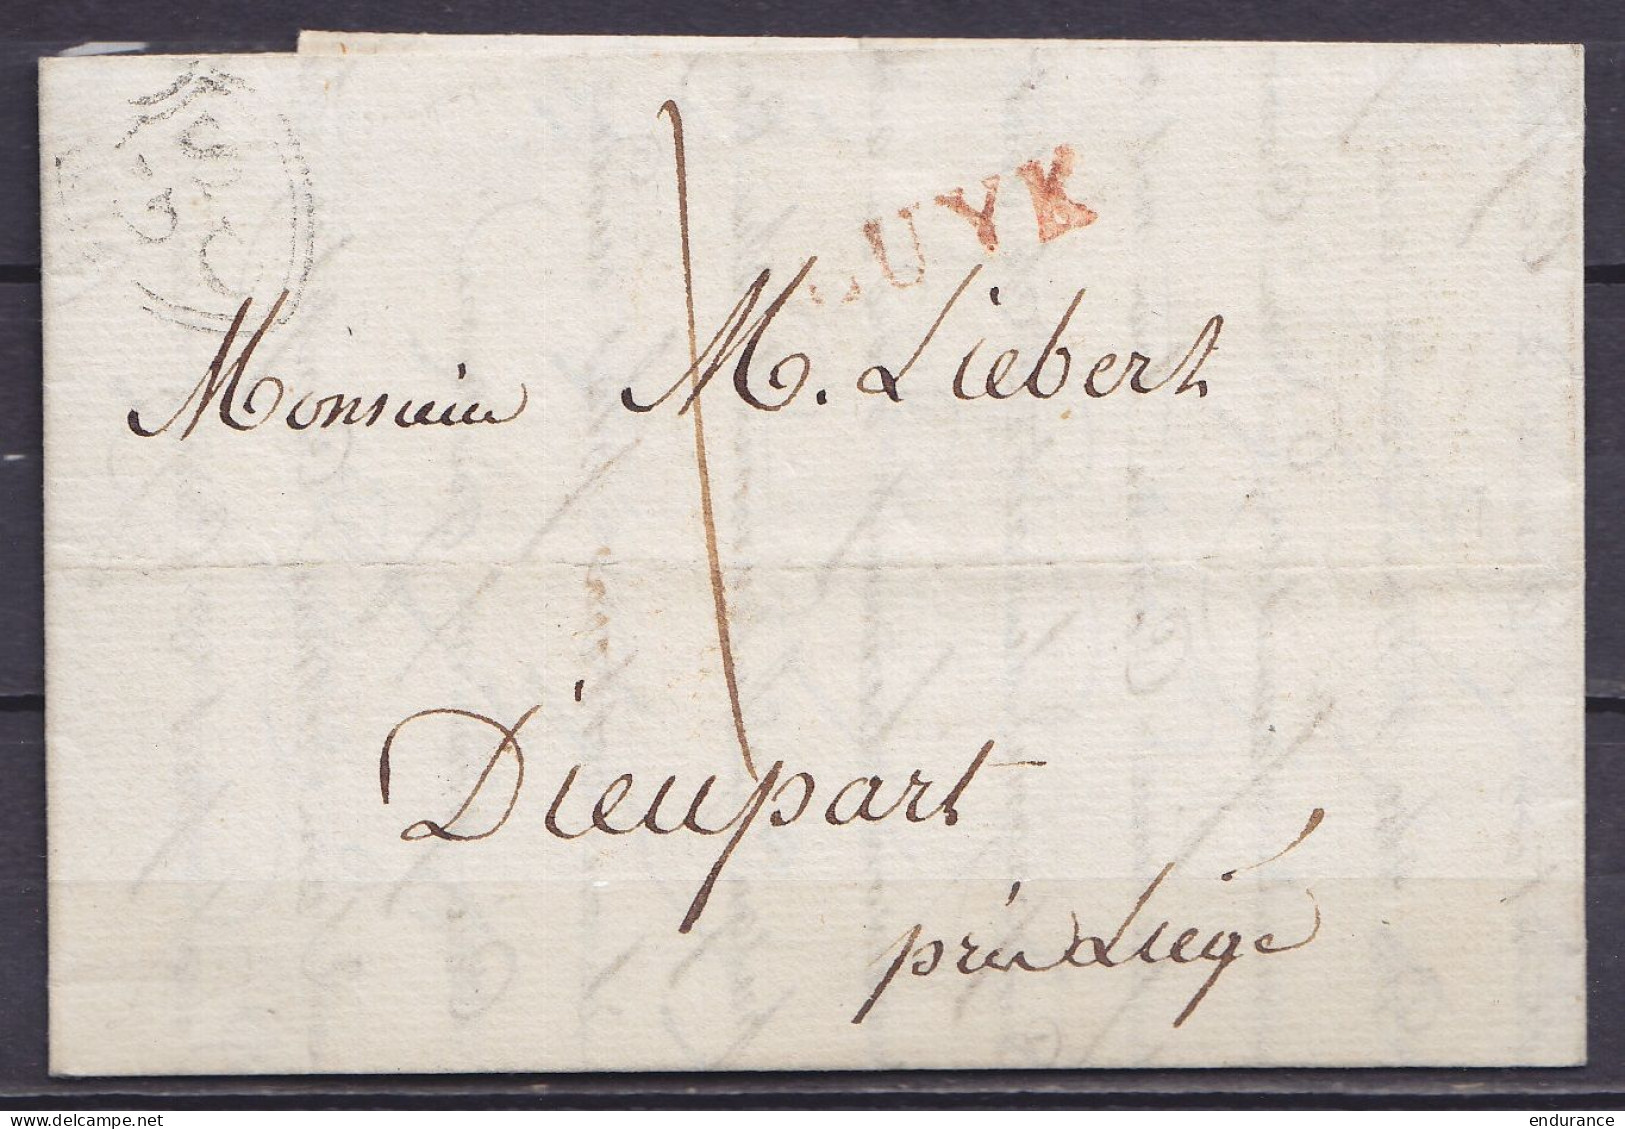 LUYK
Monsieur M. Liebert
Dieupart
près Liége
endurance